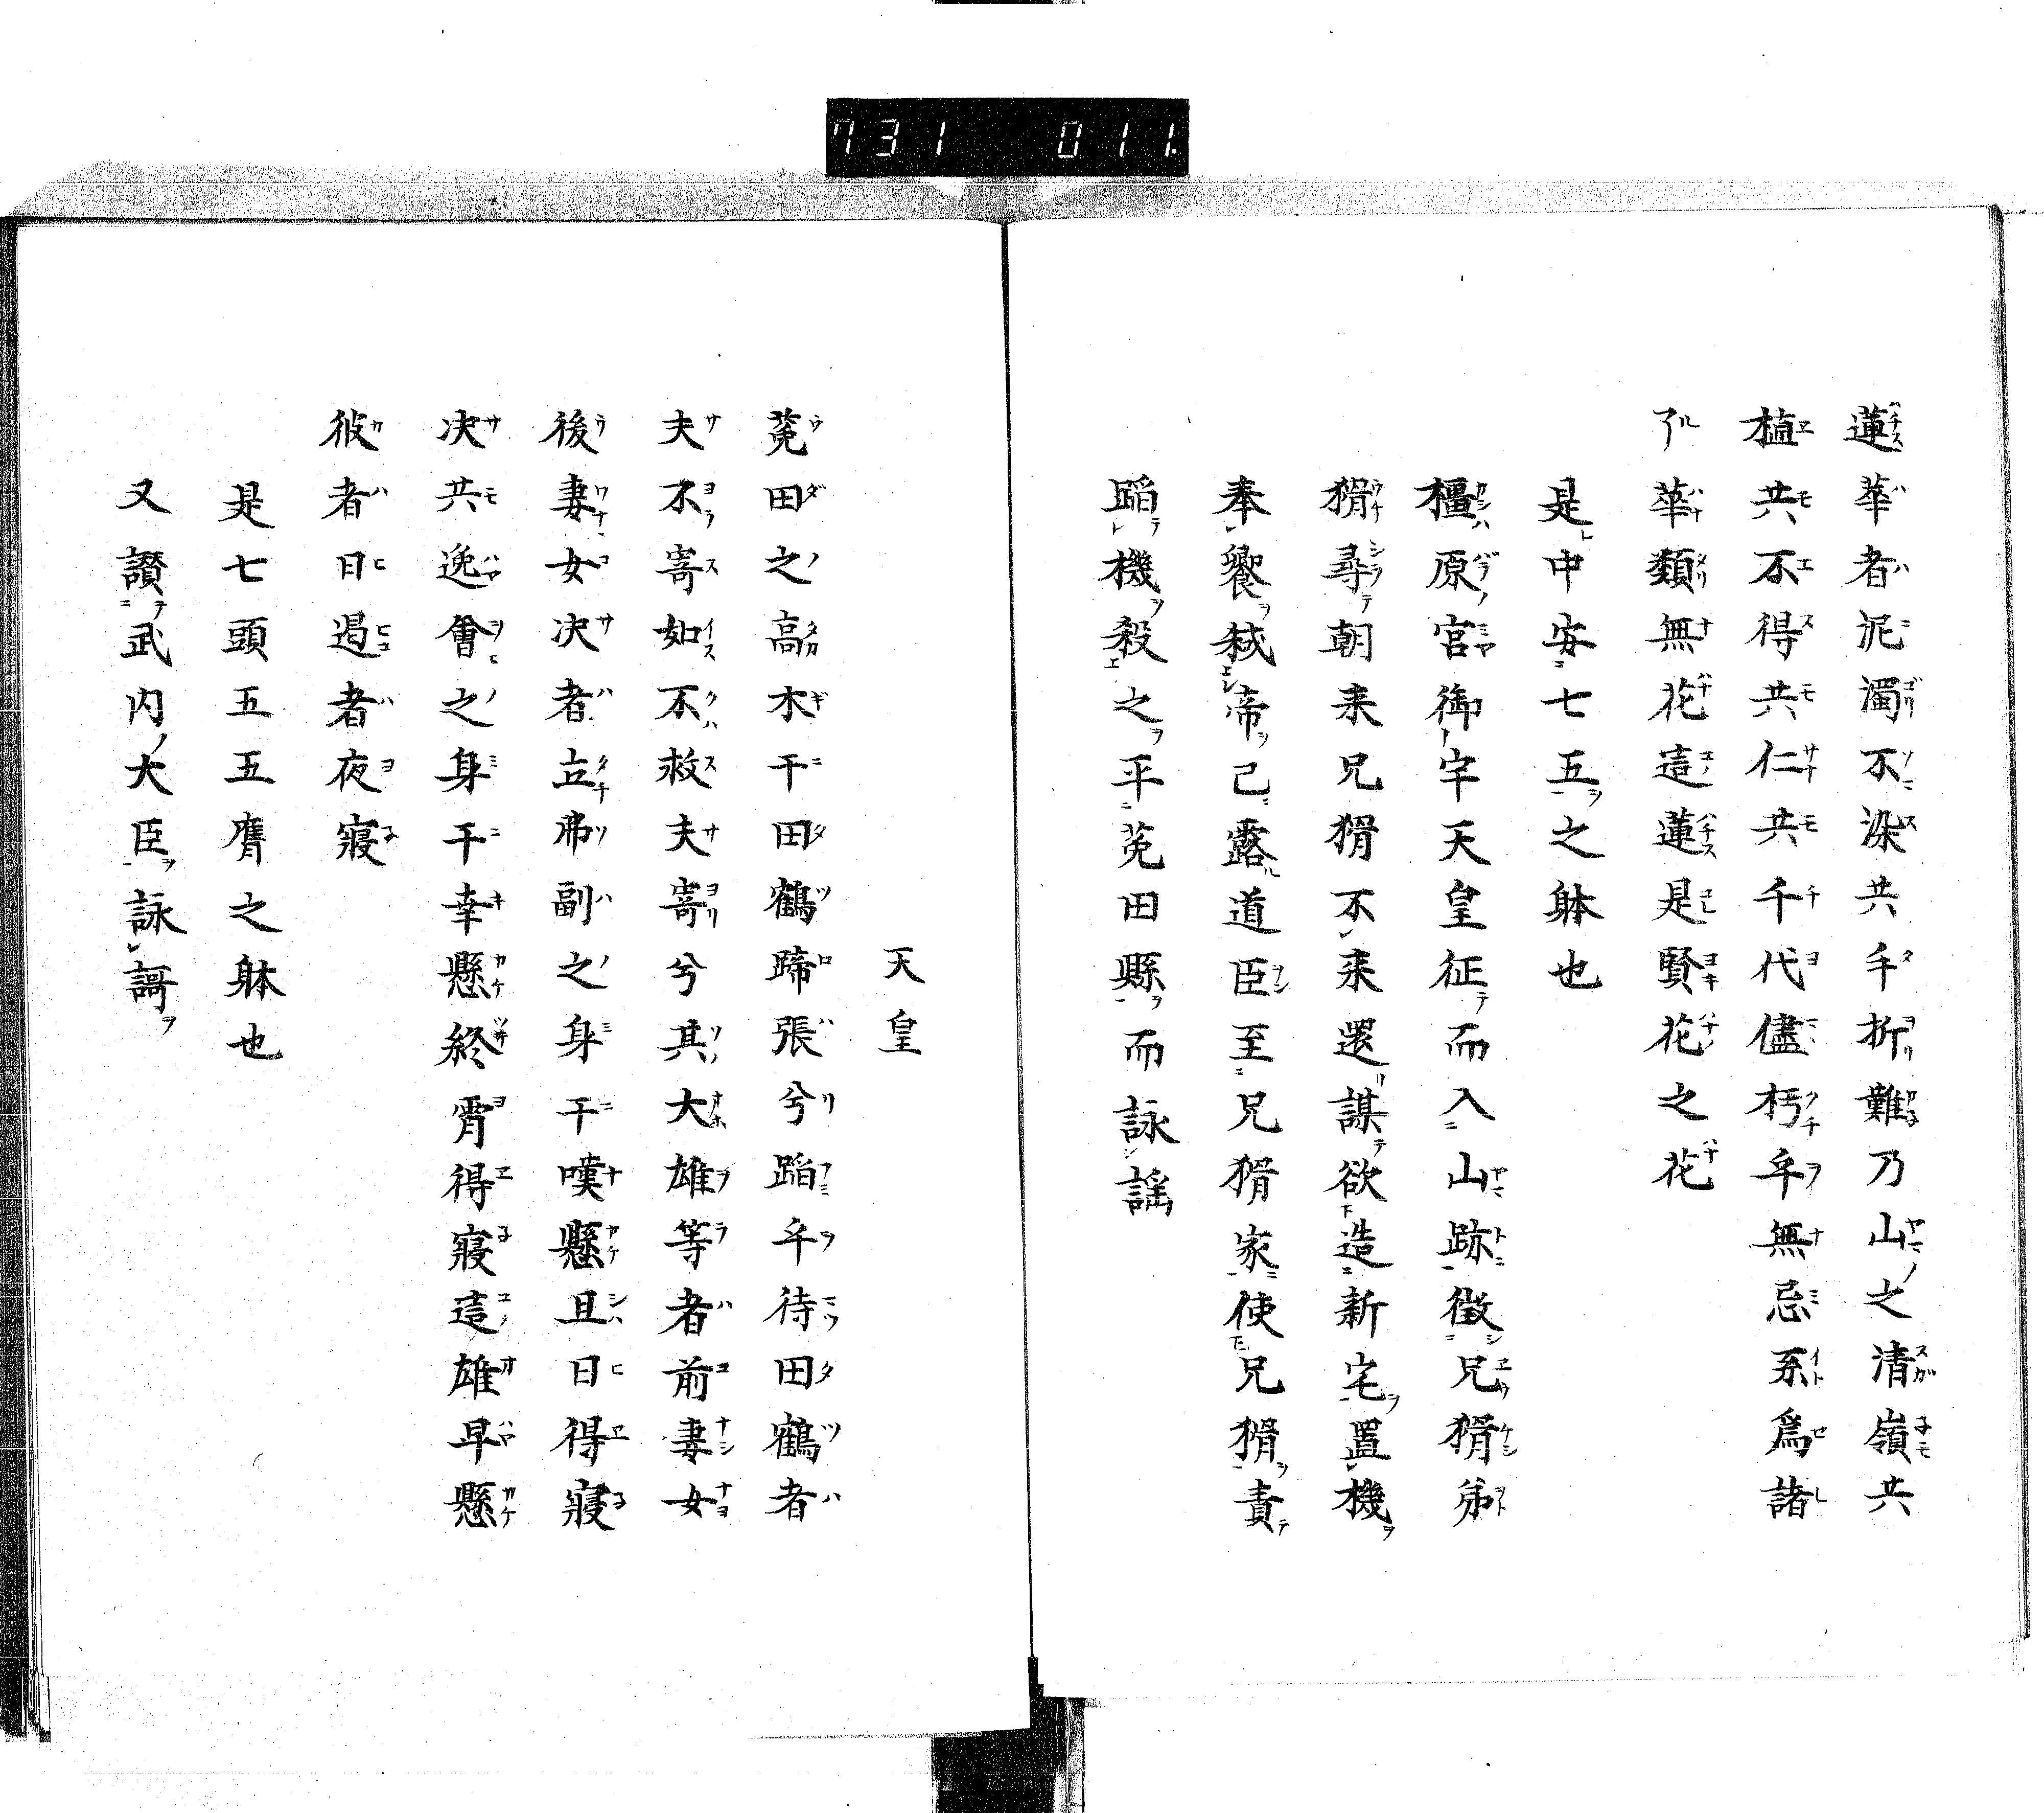 731 011
蓮華者泥濁不染共手折難乃山之清嶺共
植共不得共仁共千代儘朽乎無忌系為諸
了華類無花這蓮是賢花之花
是中安七五之躰也
橿原宮御宇天皇征而入山跡徴兄猾弟
猾尋朝来兄猾不来還謀欲造新宅置機
奉饗弑帝己露道臣至兄猾家使兄猾責
蹈機殺之平菟田縣而詠謡
天皇
菟田之高木于田鶴蹄張兮蹈乎待田鶴者
夫不寄如不救夫寄兮其大雄等者前妻女
後妻女决者立帯副之身于嘆懸且日得寢
决共逸會之身于幸懸終霄得寢這雄早懸
彼者日過者夜寢
是七頭五五膺之躰也
又讃武内大臣詠謌